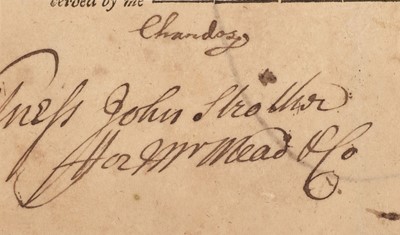 ceived by me
Chandos
ness John Strother
for Mr Mead & Co